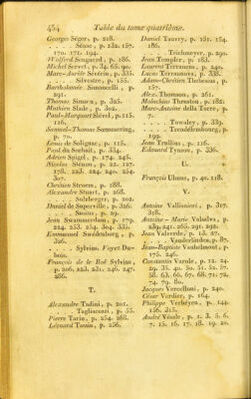 454 Table du tome quatrième.
Georges Séger, p. 218.
Sénac, p. 182. 157.
170. 171. 194.
Wolferd Senguerd, p. 186.
Michel Servet, p. 34. 65. 90.
Marc-Aurèle Séverin, p. 335.
Silvestre, p. 185.
Barthelomie Simoncelli, p.
291.
Thomas Simson, p. 325.
Mathieu Slade, p. 309.
Paul-Marquart Slevel, p. 115.
116.
Samuel-Thomas Soemmerring,
p. 70.
Louis de Solignac, p. 118.
Paul du Sorbait, p. 334.
Adrien Spigel, p. 174. 245.
Nicolas Sténon, p. 22. 127.
178. 223. 224. 240. 254.
307.
Chrétien Stroem, p. 188.
Alexandre Stuart, p. 168.
Sulzberger, p. 202.
Daniel de Superville, p. 326.
Susius, p. 29.
Jean Swammerdam, p. 179.
224. 253. 254. 304. 335.
Emmanuel Swédenborg, p.
326.
Sylvius. Voyez Du-
bois.
François de le Boë Sylvius,
p. 206. 223. 231. 246. 247.
286.
T.
Alexandre Tadini, p. 201.
Tagliacozzi, p. 55.
Pierre Tarin, p. 254. 288.
Léonard Tassin, p. 256.
Daniel Tauvry, p. 181. 154.
186.
Teichmeyer, p. 290.
Jean Templer, p. 183.
Laurent Terraneus, p. 240.
Lucas Terranuova, p. 338.
Adam-Chrétien Thebesius, p.
157.
Alex. Thomson, p. 261.
Malachias Thruston, p. 182.
Marc-Antoine della Torre, p.
7.
Townley, p. 339.
Trendelembourg, p.
192.
Jean Trullius, p. 116.
Edouard Tyson, p. 336.
U.
François Ulmus, p. 40. 118.
V.
Antoine Vallisnieri, p. 317.
318.
Antoine-Marie Valsalva, p.
239. 241. 265. 291. 292.
Jean Valverde, p. 13. 27.
Vanderlinden, p. 87.
Jean-Baptiste Vanhelmont, p.
175. 246.
Constantin Varole, p. 24.
29. 35. 40. 50. 51. 52. 57.
58. 63. 66. 67. 68. 71. 72.
74. 79. 80.
Jacques Vercelloni, p. 240.
César Verdier, p. 164.
Philippe Verheyen, p. 144.
156. 315.
André Vésale, p. 1. 3. 5. 6.
7. 15. 16. 17. 18. 19. 20.